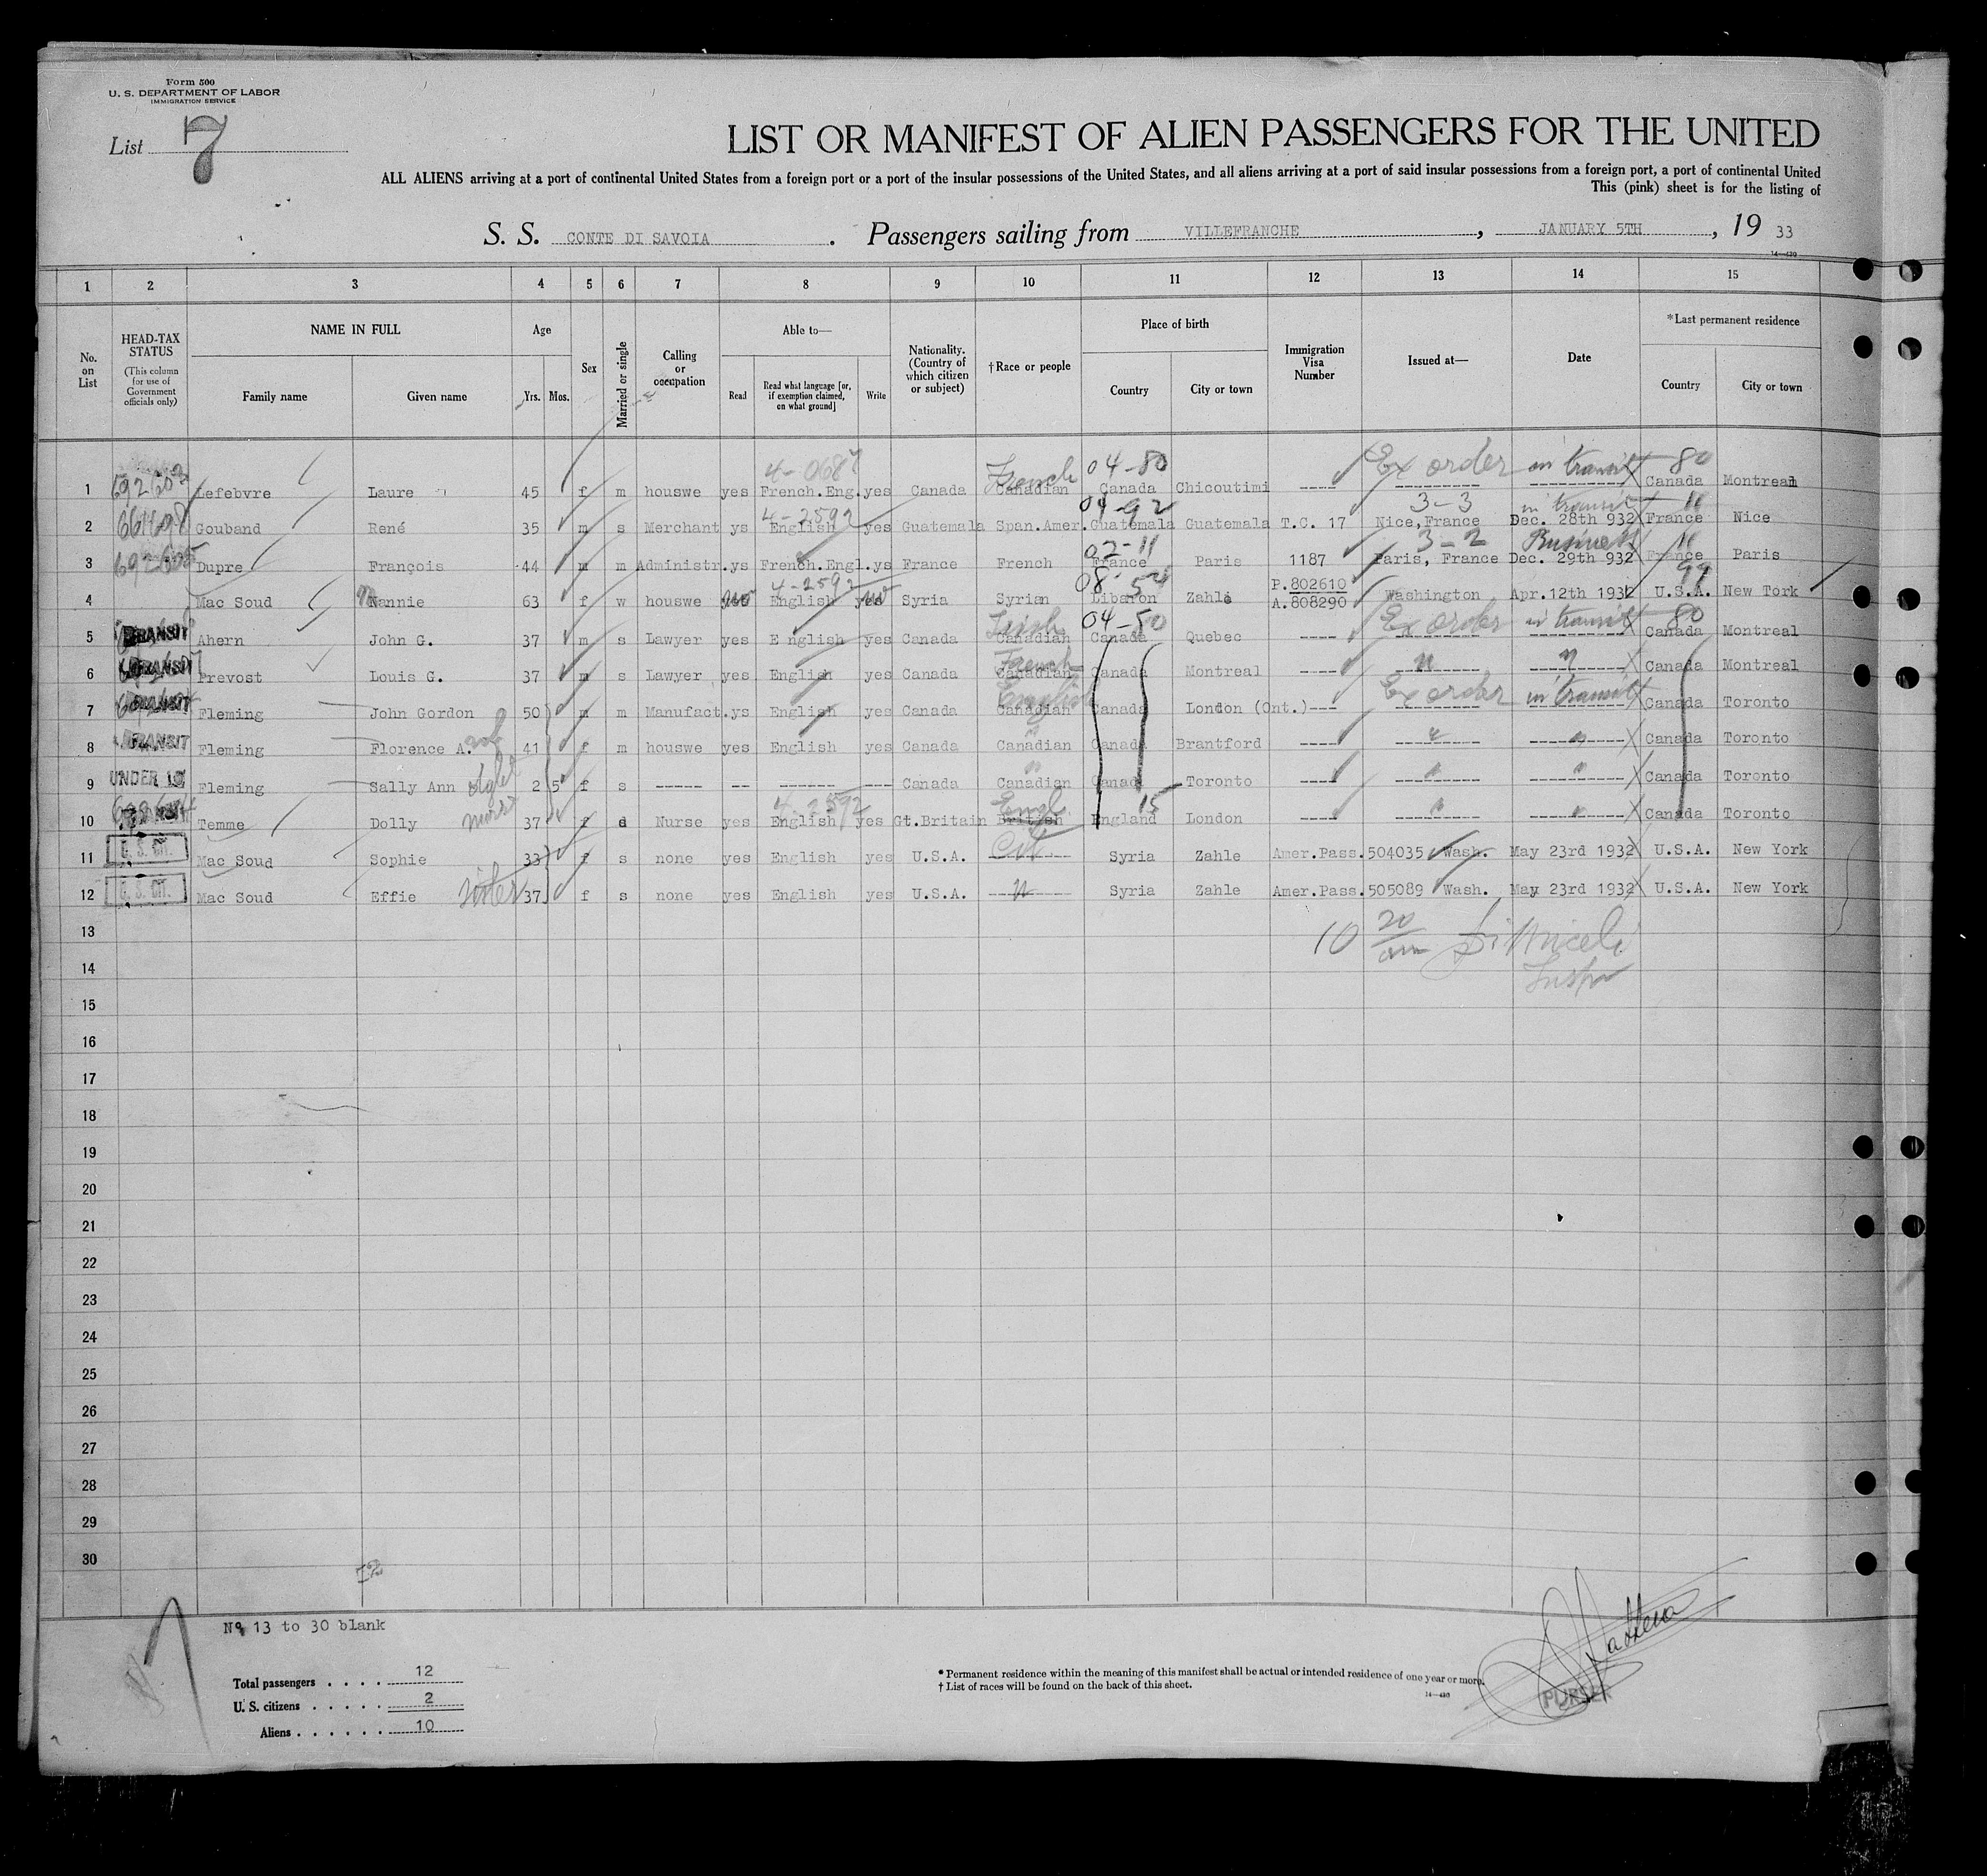 Form 500
U. S. DEPARTMENT OF LABOR
IMMIGRATION SERVICE
List 7
LIST OR MANIFEST OF ALIEN PASSENGERS FOR THE UNITED
ALL ALIENS arriving at a port of continental United States from a foreign port or a port of the insular possessions of the United States, and all aliens arriving at a port of said insular possessions from a foreign port, a port of continental United
This (pink) sheet is for the listing of
S. S. CONTE DI SAVOIA. Passengers sailing from VILLEFRANCHE, JANUARY 5TH, 19 33
14—430
1 2 3 4 5 6 7 8 9 10 11 12 13 14 15
No. on List
HEAD-TAX STATUS (This column for use of Government officials only)
NAME IN FULL
Family name
Given name
Age
Yrs. Mos.
Sex
Married or single
Calling or occupation
Able to—
Read
Read what language [or, if exemption claimed, on what ground]
Write
Nationality. (Country of which citizen or subject)
†Race or people
Place of birth
Country
City or town
Immigration Visa Number
Issued at—
Date
*Last permanent residence
Country
City or town
4-0687 French 04-80 Ex order in transit 80
1 Lefebvre Laure 45 f m houswe yes French.Eng. yes Canada Canadian Canada Chicoutimi ---- Canada Montreal
4-2592 04-92 3-3 in transit 11
2 Gouband René 35 m s Merchant ys English yes Guatemala Span.Amer. Guatemala Guatemala T.C. 17 Nice,France Dec. 28th 932 France Nice
02-11 3-2 Business 11
3 692605 Dupre François 44 m m Administr. ys French.Engl. ys France French France Paris 1187 Paris, France Dec. 29th 932 France Paris
4-2592 08-54 99
4 Mac Soud Nannie 63 f w houswe no English no Syria Syrian Libanon Zahlé P.802610 A.808290 Washington Apr.12th 1932 U.S.A. New York
Irish 04-50 Ex order in transit 80
5 TRANSIT Ahern John G. 37 m s Lawyer yes English yes Canada Canadian Canada Quebec ---- Canada Montreal
French " "
6 TRANSIT Prevost Louis G. 37 m s Lawyer yes English yes Canada Canadian Canada Montreal ---- Canada Montreal
English Ex order in transit
7 TRANSIT Fleming John Gordon 50 m m Manufact. ys English yes Canada Canadian Canada London (Ont.) --- Canada Toronto
8 TRANSIT Fleming Florence A. wf 41 f m houswe yes English yes Canada Canadian Canada Brantford ---- " " Canada Toronto
9 UNDER 16 Fleming Sally Ann dghtr 2 5 f s ----- -- ------ --- Canada Canadian Canada Toronto ---- " " Canada Toronto
4-2592 Engl 15
10 TRANSIT Temme Dolly nurse 37 f d Nurse yes English yes Gt.Britain British England London ---- " " Canada Toronto
11 U. S. CIT. Mac Soud Sophie 33 f s none yes English yes U.S.A. Cit Syria Zahle Amer.Pass. 504035 Wash. May 23rd 1932 U.S.A. New York
12 U. S. CIT. Mac Soud Effie sister 37 f s none yes English yes U.S.A. " Syria Zahle Amer.Pass. 505089 Wash. May 23rd 1932 U.S.A. New York
13
14
15
16
17
18
19
20
21
22
23
24
25
26
27
28
29
30
Nº 13 to 30 blank
Total passengers . . . . 12
U. S. citizens . . . . . 2
Aliens . . . . . . 10
* Permanent residence within the meaning of this manifest shall be actual or intended residence of one year or more.
† List of races will be found on the back of this sheet.
14—430
PURSER